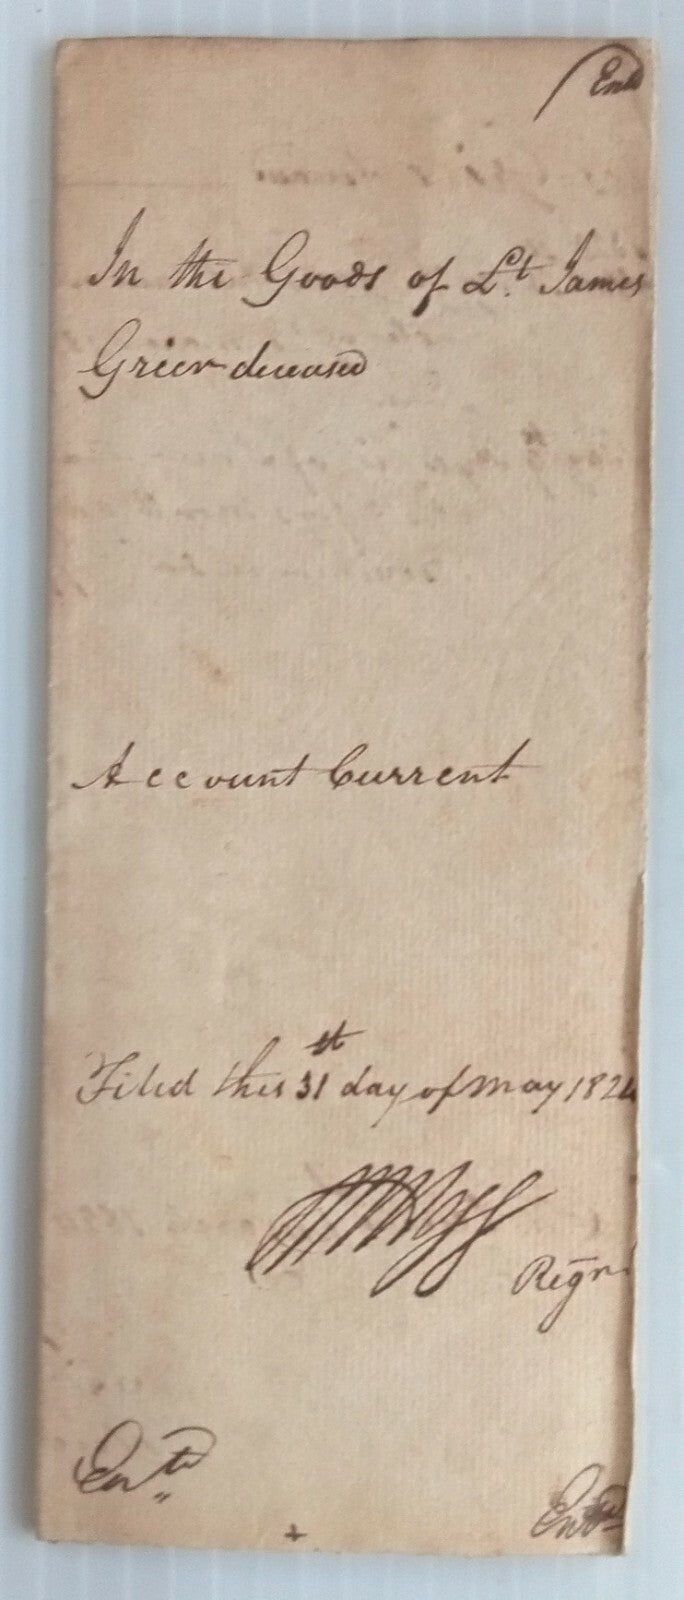 Entd
In the Goods of Lt. James
Grier deceased
Account Current
Filed this 31st day of May 1824
Regr
Entd
Entd